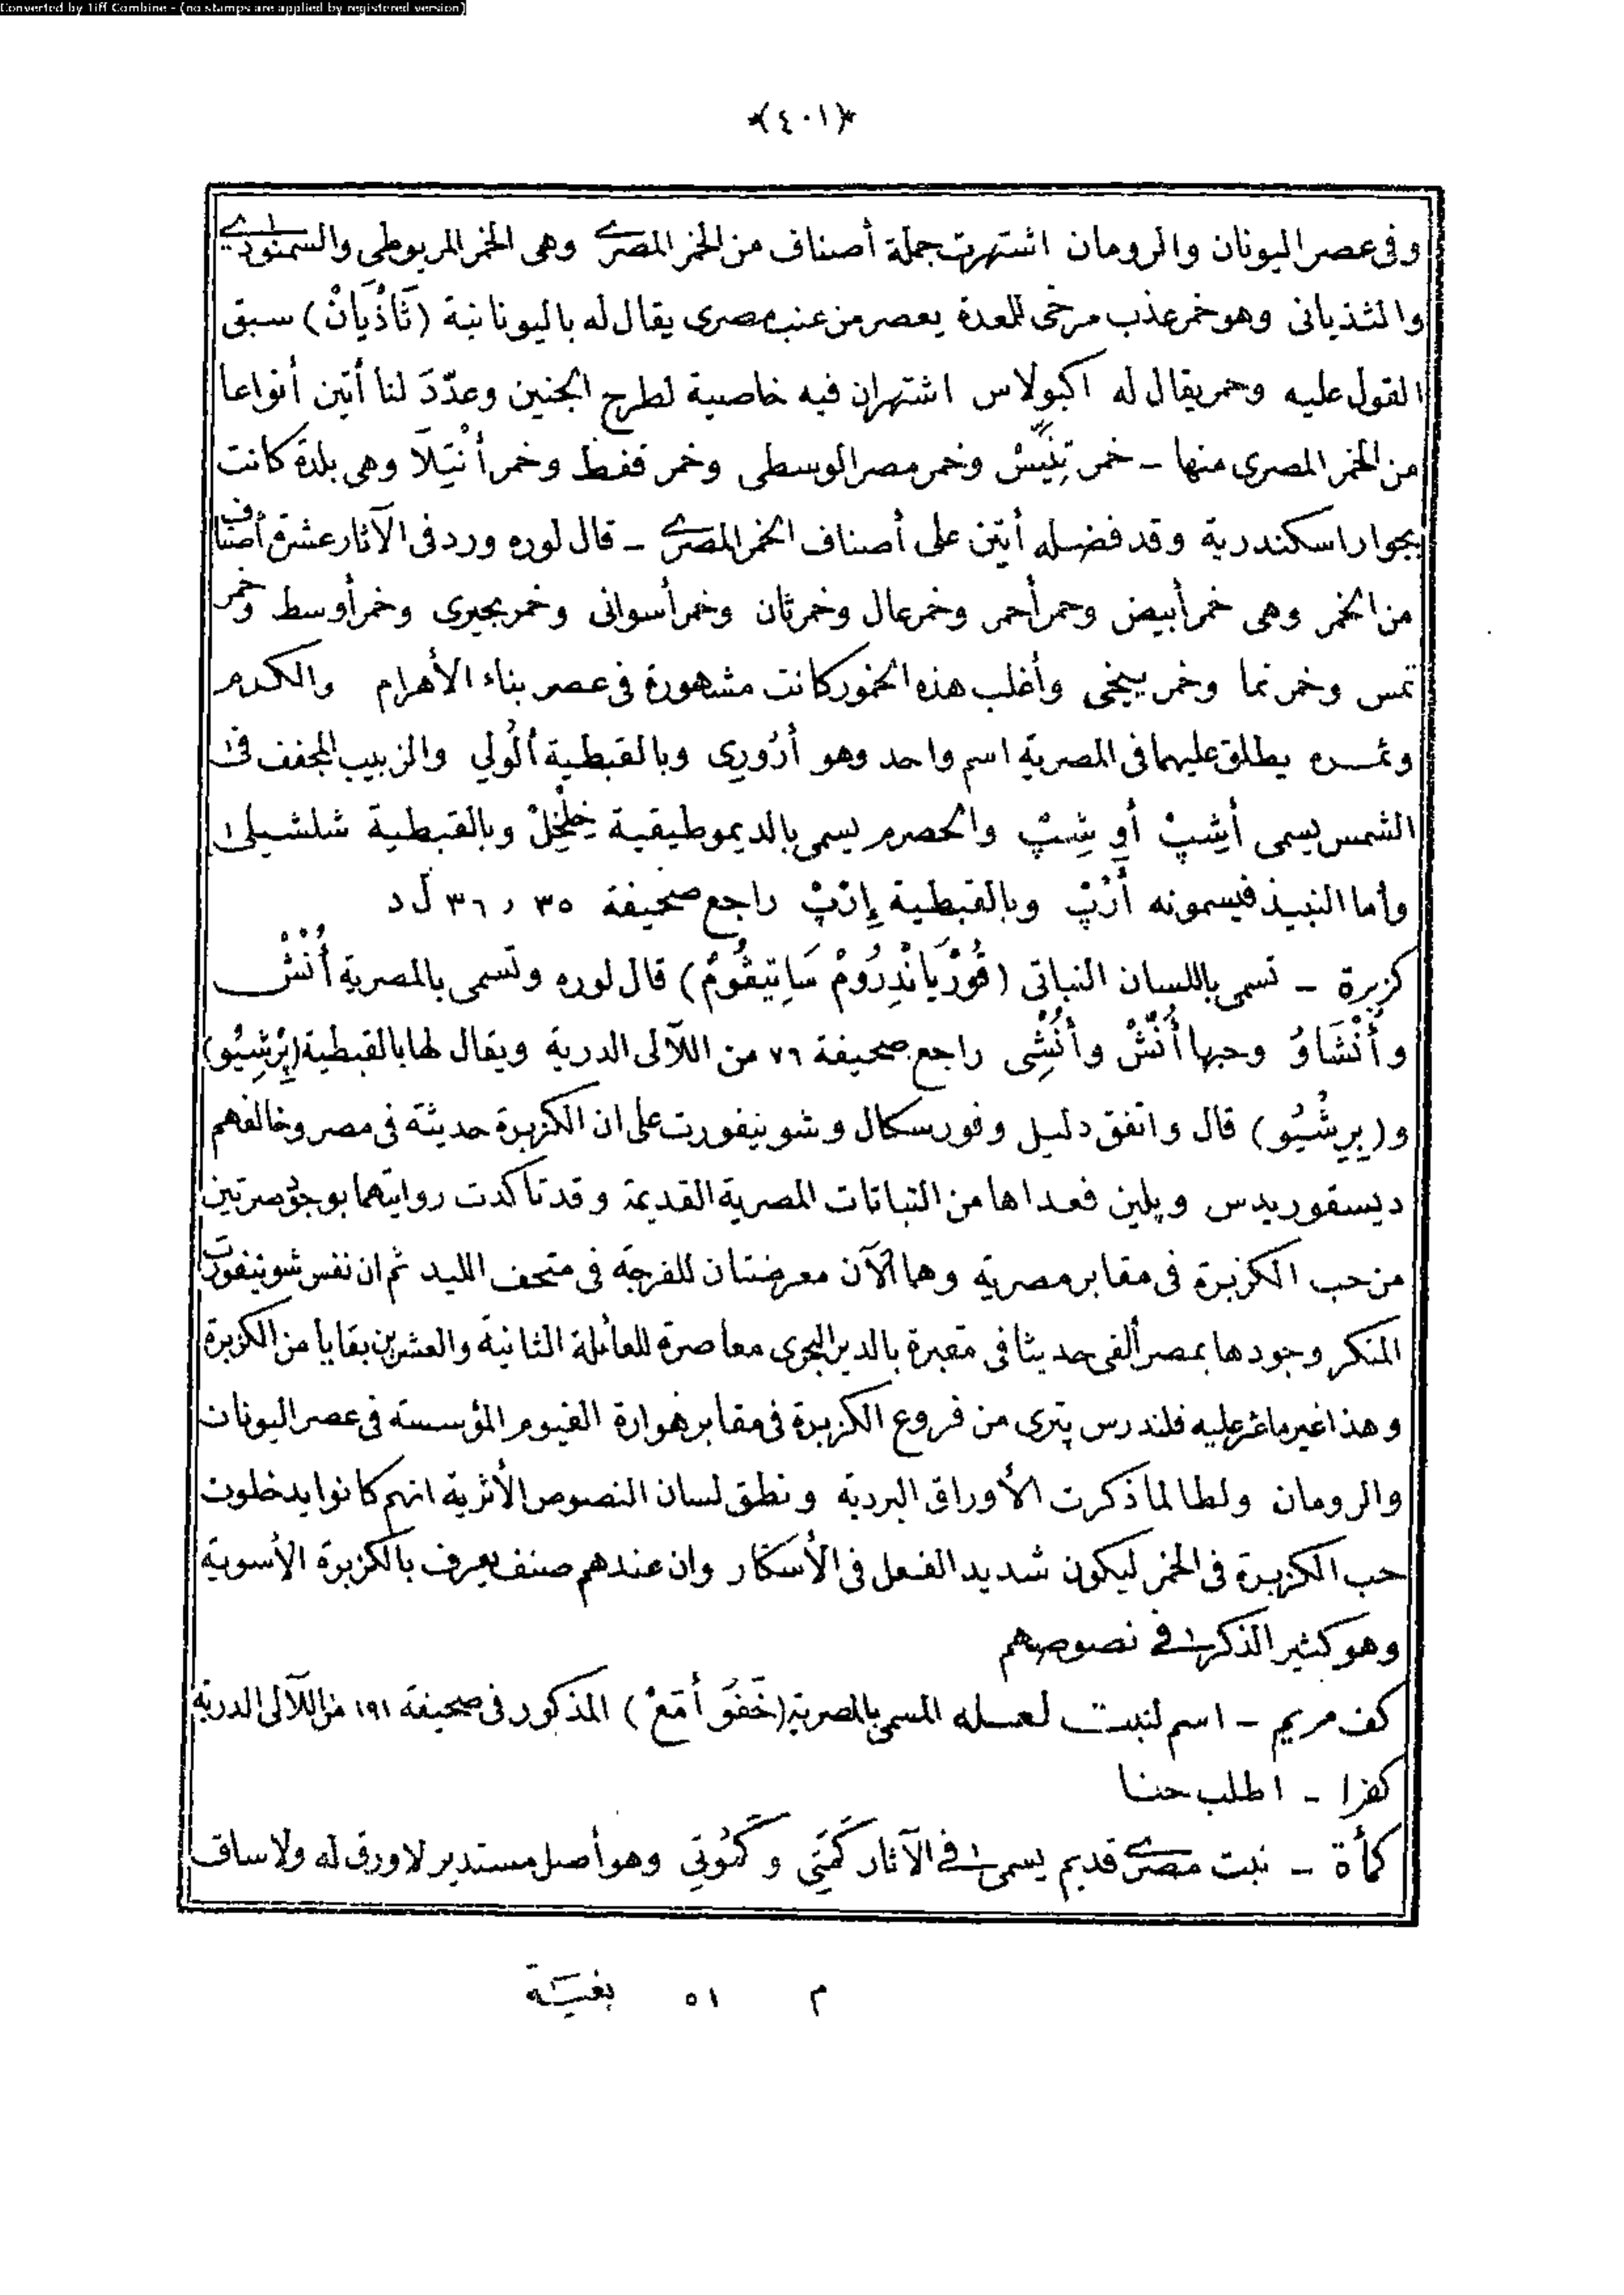 Converted by Tiff Combine - (no stamps are applied by registered version)
*(٤٠١)*
وفى عصر اليونان والرومان اشتهرت جملة أصناف من الخمر المصرى وهى الخمر المريوطى والسمنودى
والثذيانى وهو خمر عذب مرخى للمعدة يعصر من عنب مصرى يقال له باليونانية (ثَاذْيَانْ) سبق
القول عليه وخمر يقال له اكبولاس اشتهران فيه خاصية لطرح الجنين وعدّدَ لنا أتين أنواعا
من الخمر المصرى منها ـ خمر تِنِّيسْ وخمر مصر الوسطى وخمر قفط وخمر أنْتِلَا وهى بلدة كانت
بجوار اسكندرية وقد فضله أتين على أصناف الخمر المصرى ـ قال لوره ورد فى الآثار عشرة أصناف
من الخمر وهى خمر أبيض وخمر أحمر وخمر عال وخمر ثان وخمر أسوانى وخمر بحيرى وخمر أوسط وخمر
تمس وخمر نما وخمر سيخى وأغلب هذه الخمور كانت مشهورة فى عصر بناء الأهرام والكرم
وثمره يطلق عليهما فى المصرية اسم واحد وهو أرُورِى وبالقبطية ألُولي والزبيب المجفف فى
الشمس يسمى أشِبْ أو شِبْ والحصرم يسمى بالديموطيقية خِلْخِلْ وبالقبطية شلشيلى
وأما النبيذ فيسمونه أَرْپْ وبالقبطية إرْپْ راجع صحيفة ٣٥ ر ٣٦ ل د
كزبرة ـ تسمى باللسان النباتى (قُورْيَانْدِرُومْ سَاتِيڤُومْ) قال لوره وتسمى بالمصرية أُنْشْ
وأُنْشَاوُ وحبها أُنْشْ وأُنْشِى راجع صحيفة ٧٦ من اللآلى الدرية ويقال لها بالقبطية (بِرْشِيُو)
و(بِرِشْيُو) قال واتفق دليل وفورسكال وشوينفورت على ان الكزبرة حديثة فى مصر وخالفهم
ديسقوريدس وپلين فعداها من النباتات المصرية القديمة وقد تأكدت روايتهما بوجود صرتين
من حب الكزبرة فى مقابر مصرية وهما الآن معرضتان للفرجة فى متحف الليد ثم ان نفس شوينفورت
المنكر وجودها بمصر ألفى حديثا فى مقبرة بالدير البحرى معاصرة للعائلة الثانية والعشرين بقايا من الكزبرة
وهذا غير ما عثر عليه فلندرس پترى من فروع الكزبرة فى مقابر هوارة الفيوم المؤسسة فى عصر اليونان
والرومان ولطالما ذكرت الأوراق البردية ونطق لسان النصوص الأثرية انهم كانوا يدخلون
حب الكزبرة فى الخمر ليكون شديد الفعل فى الأسكار وان عندهم صنف يعرف بالكزبرة الأسوية
وهو كثير الذكر فى نصوصهم
كف مريم ـ اسم لنبت لعله المسمى بالمصرية (خَفَوُ أمَعْ) المذكور فى صحيفة ١٩١ من اللآلى الدرية
كفرا ـ اطلب حنا
كمأة ـ نبت مصرى قديم يسمى فى الآثار كَمَتِي وكَمُوتِي وهو أصل مستدير لا ورق له ولا ساق
م ٥١ بغية